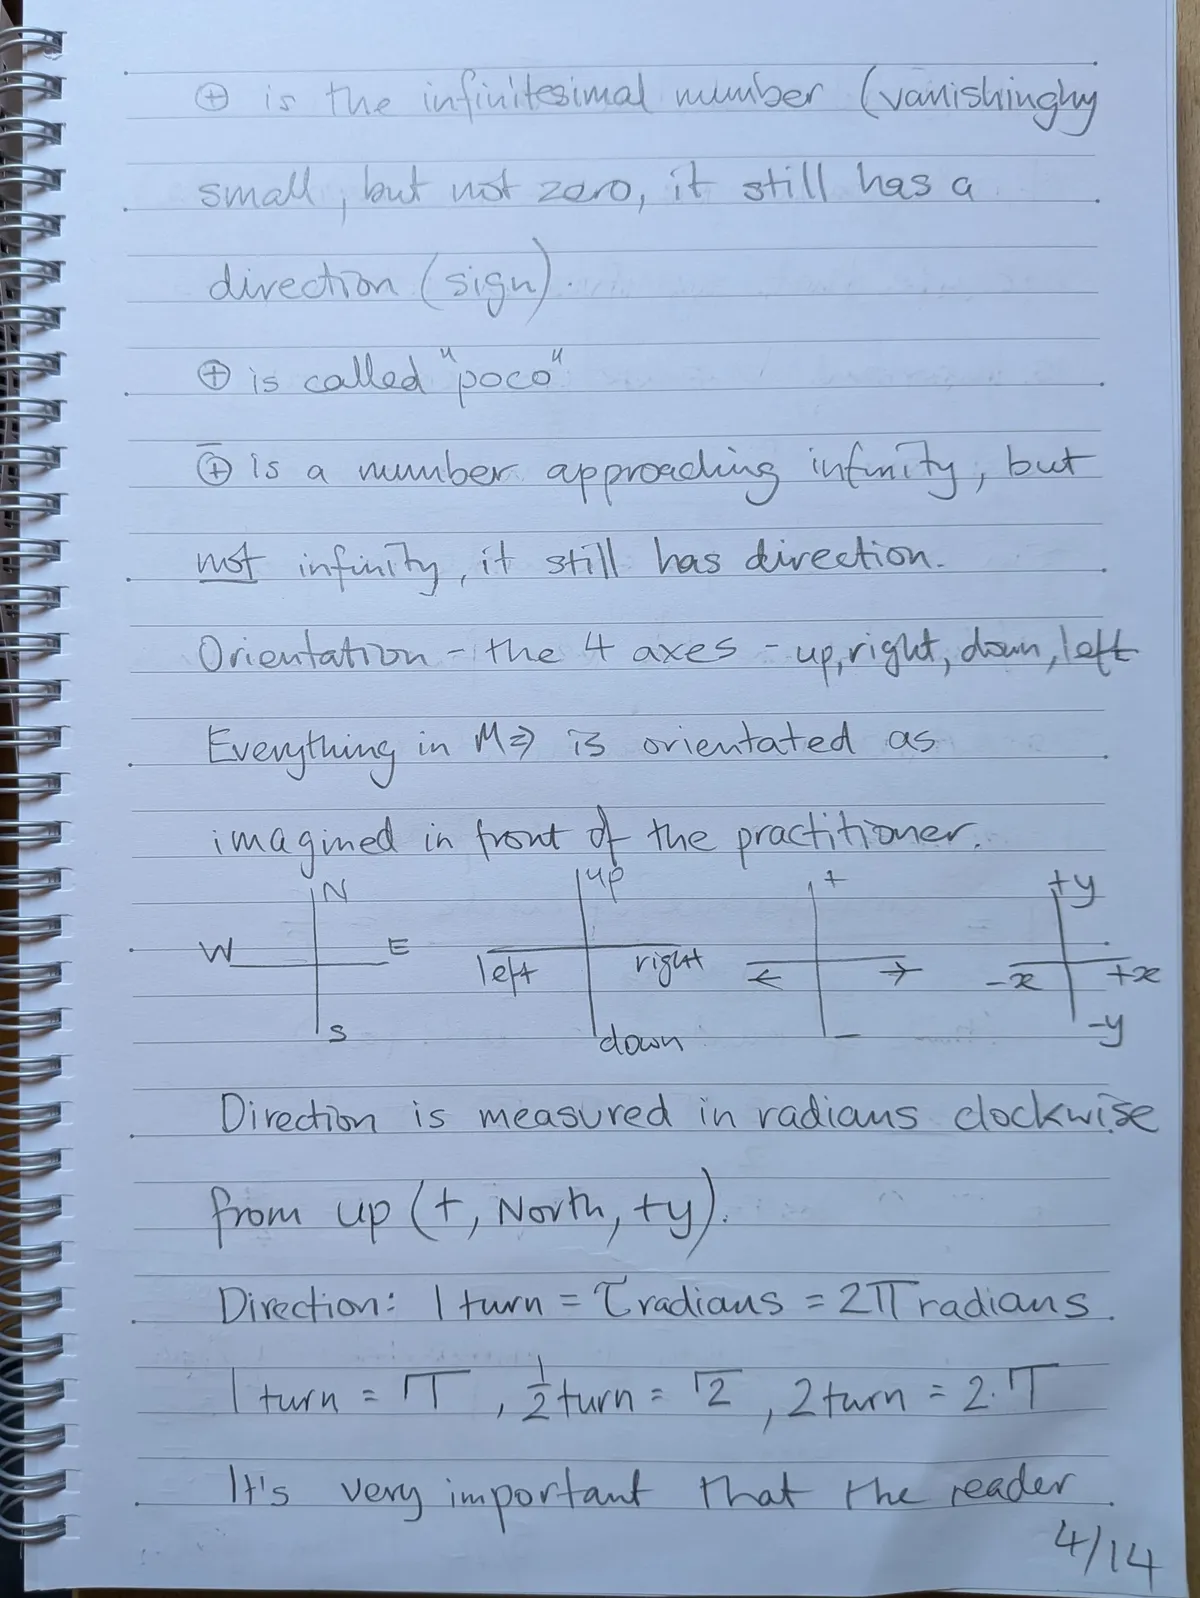 ⊕ is the infinitesimal number (vanishinghy
small, but not zero, it still has a
direction (sign).
⊕ is called "poco"
⊕̅ is a number approaching infinity, but
not infinity, it still has direction.
Orientation - the 4 axes - up, right, down, left
Everything in M⇒ is orientated as
imagined in front of the practitioner.
N up + +y
W E left right ← → -x +x
S down - -y
Direction is measured in radians clockwise
from up (+, North, +y).
Direction: 1 turn = τ radians = 2π radians.
1 turn = , ½ turn = , 2 turn = 2.
It's very important that the reader
4/14